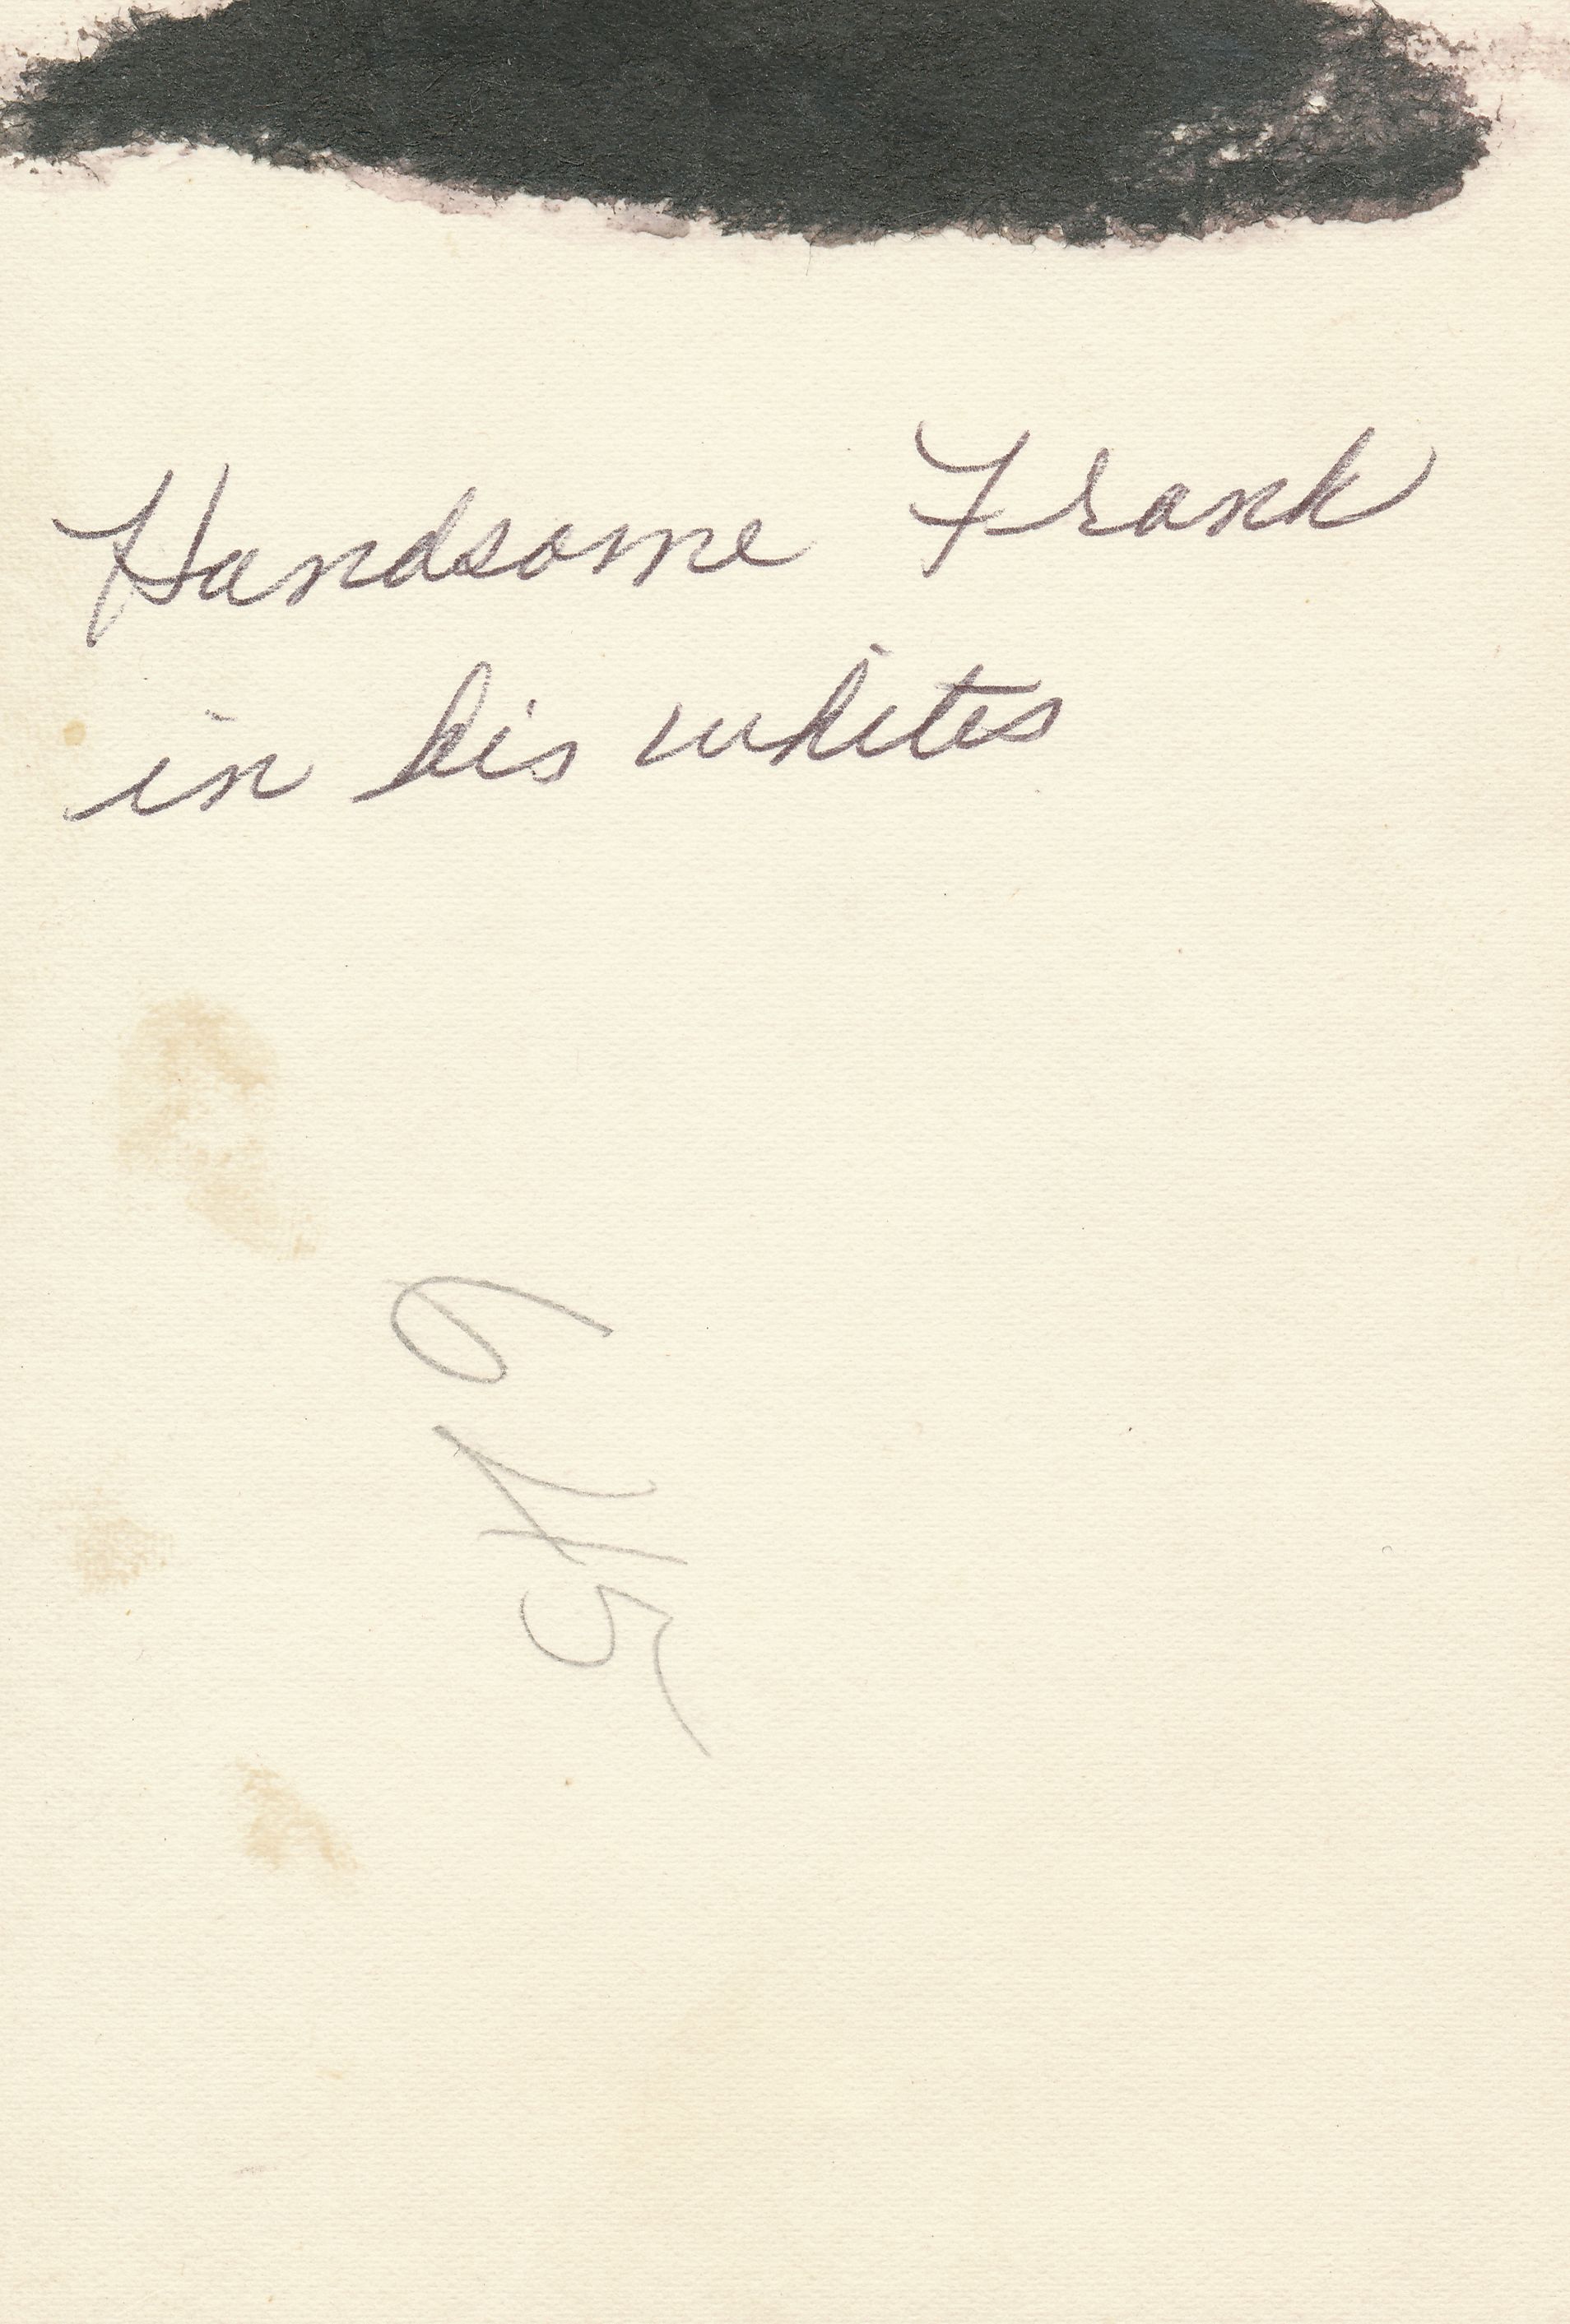 Handsome Frank
in his whites
645